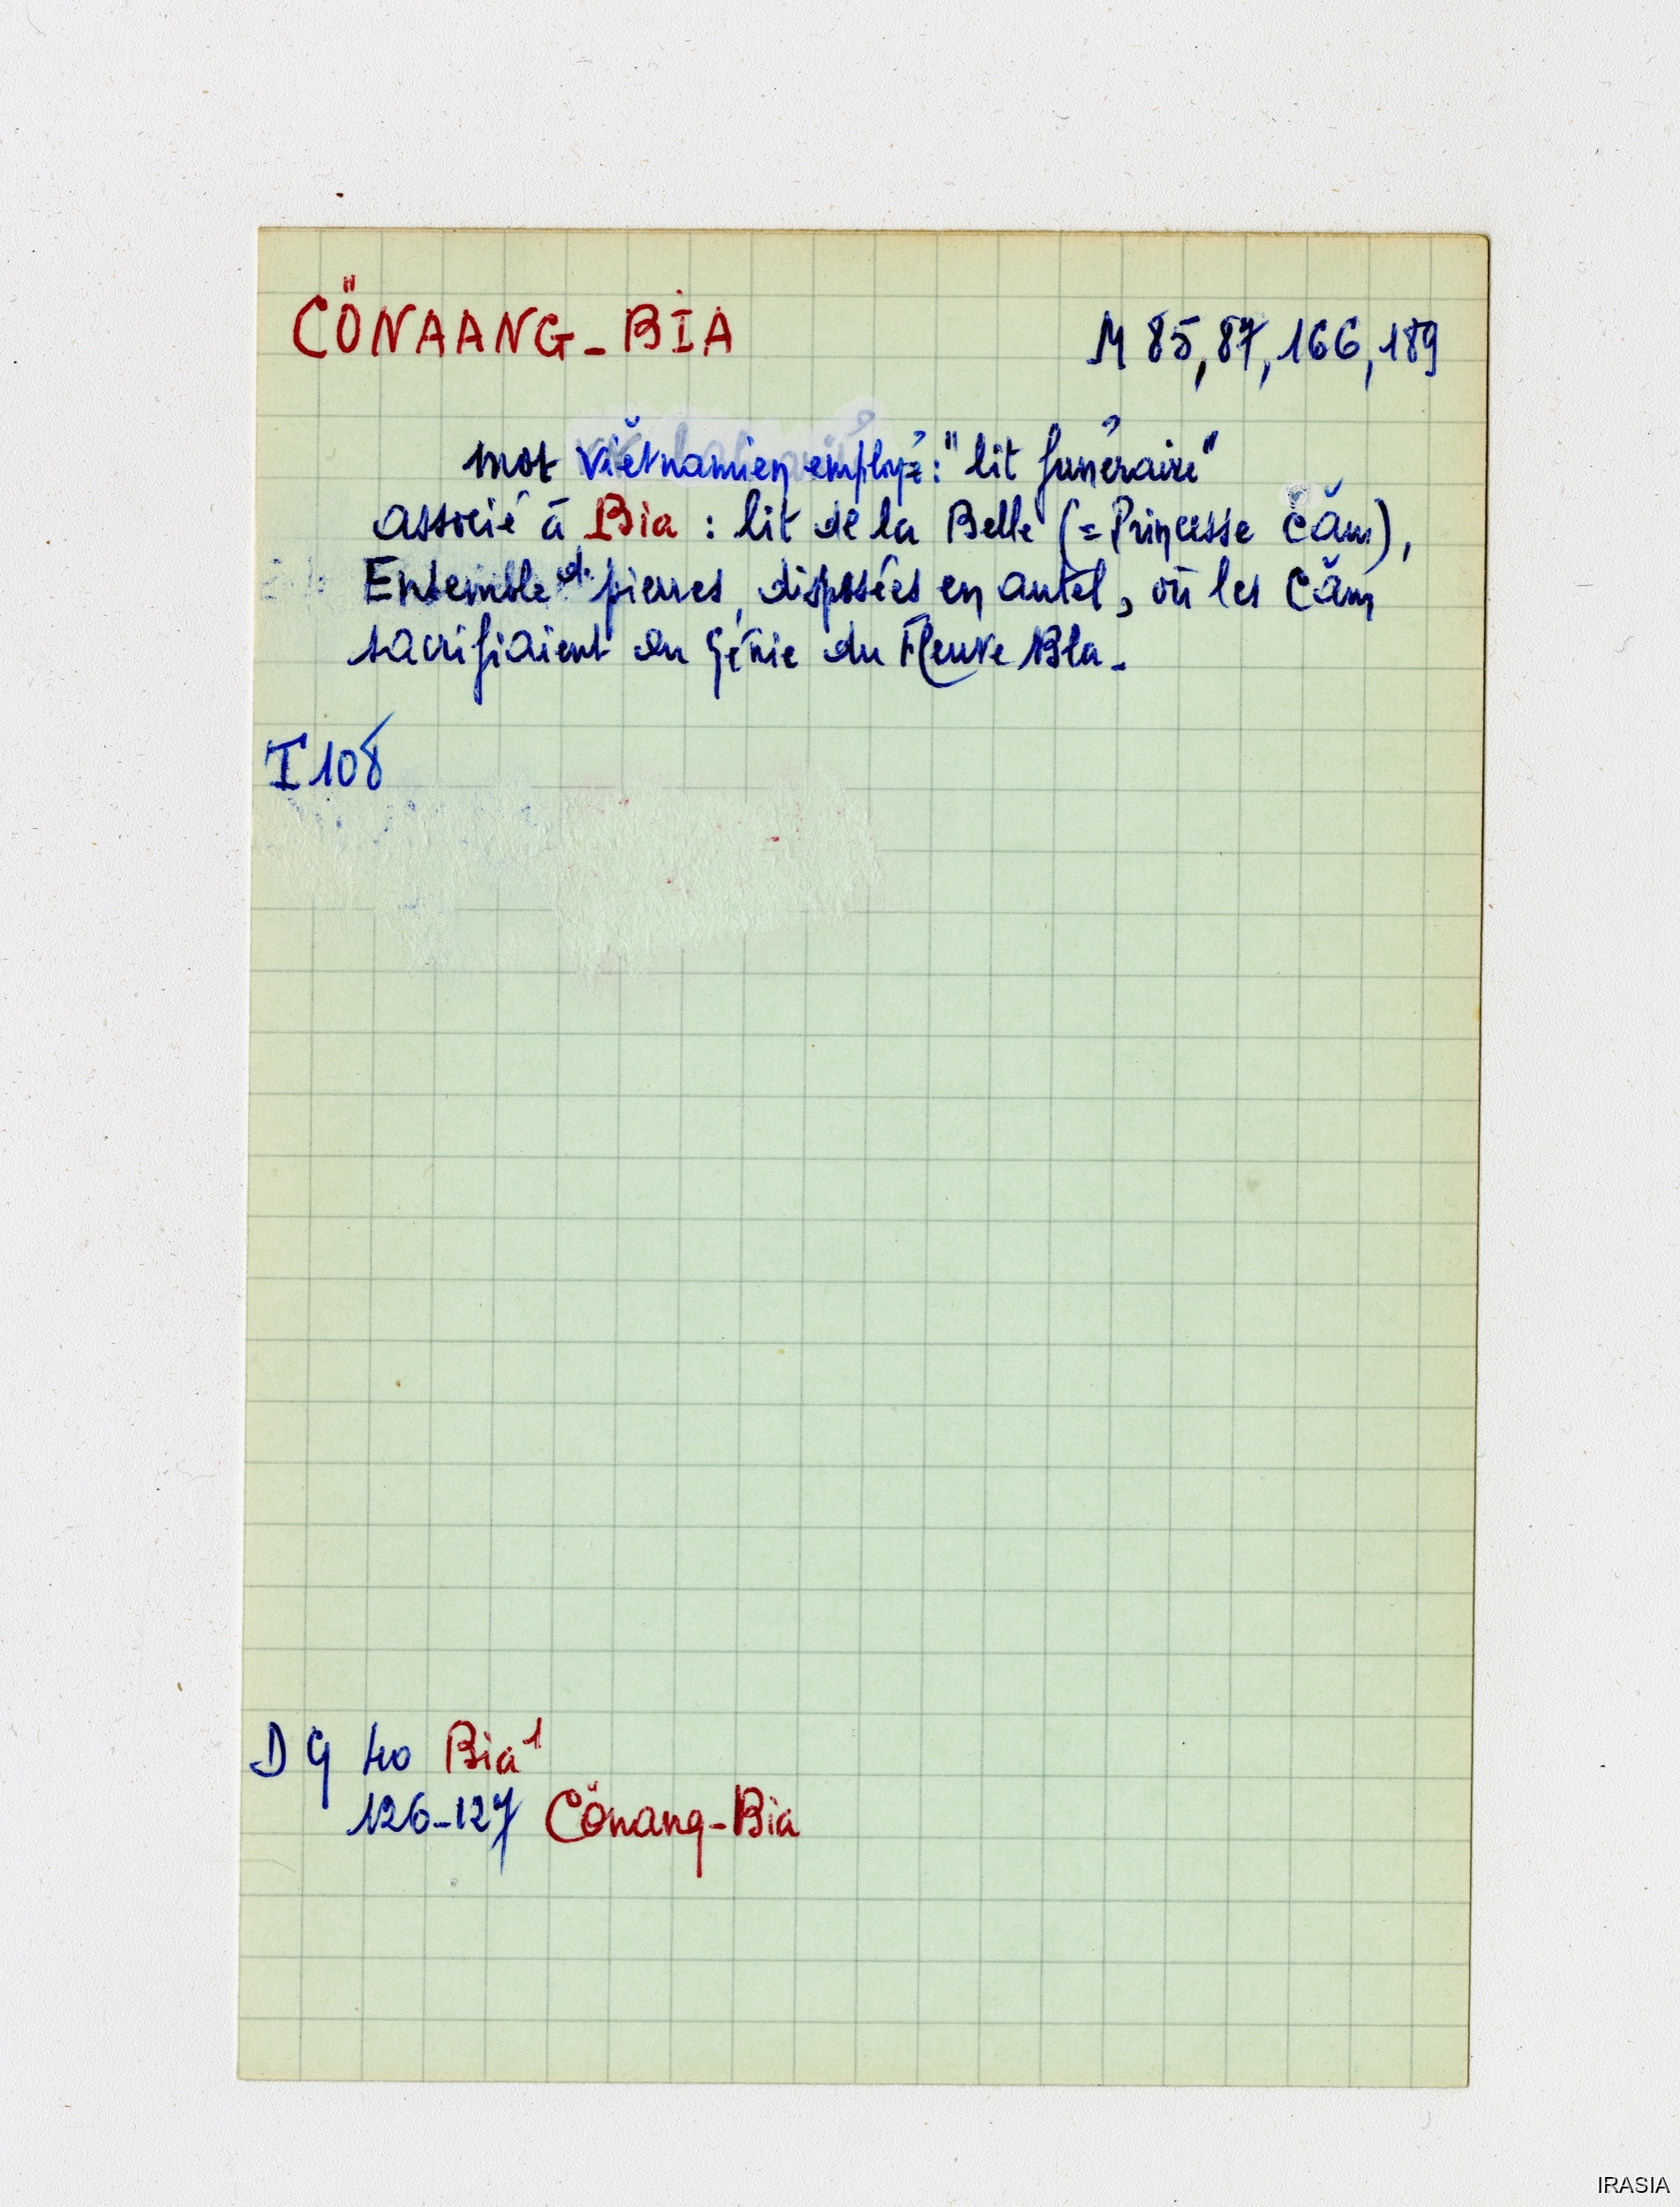 CÖNAANG_BIA
M 85, 87, 166, 189
mot viětnamien employé : "lit funéraire"
associé à Bia : lit de la Belle (= Princesse Căm),
Ensemble de pierres, disposées en autel, où les Căm
sacrifiaient au Génie du Fleuve Bla_
I 108
D G 40 Bia¹
126-127 Cönang-Bia
IRASIA